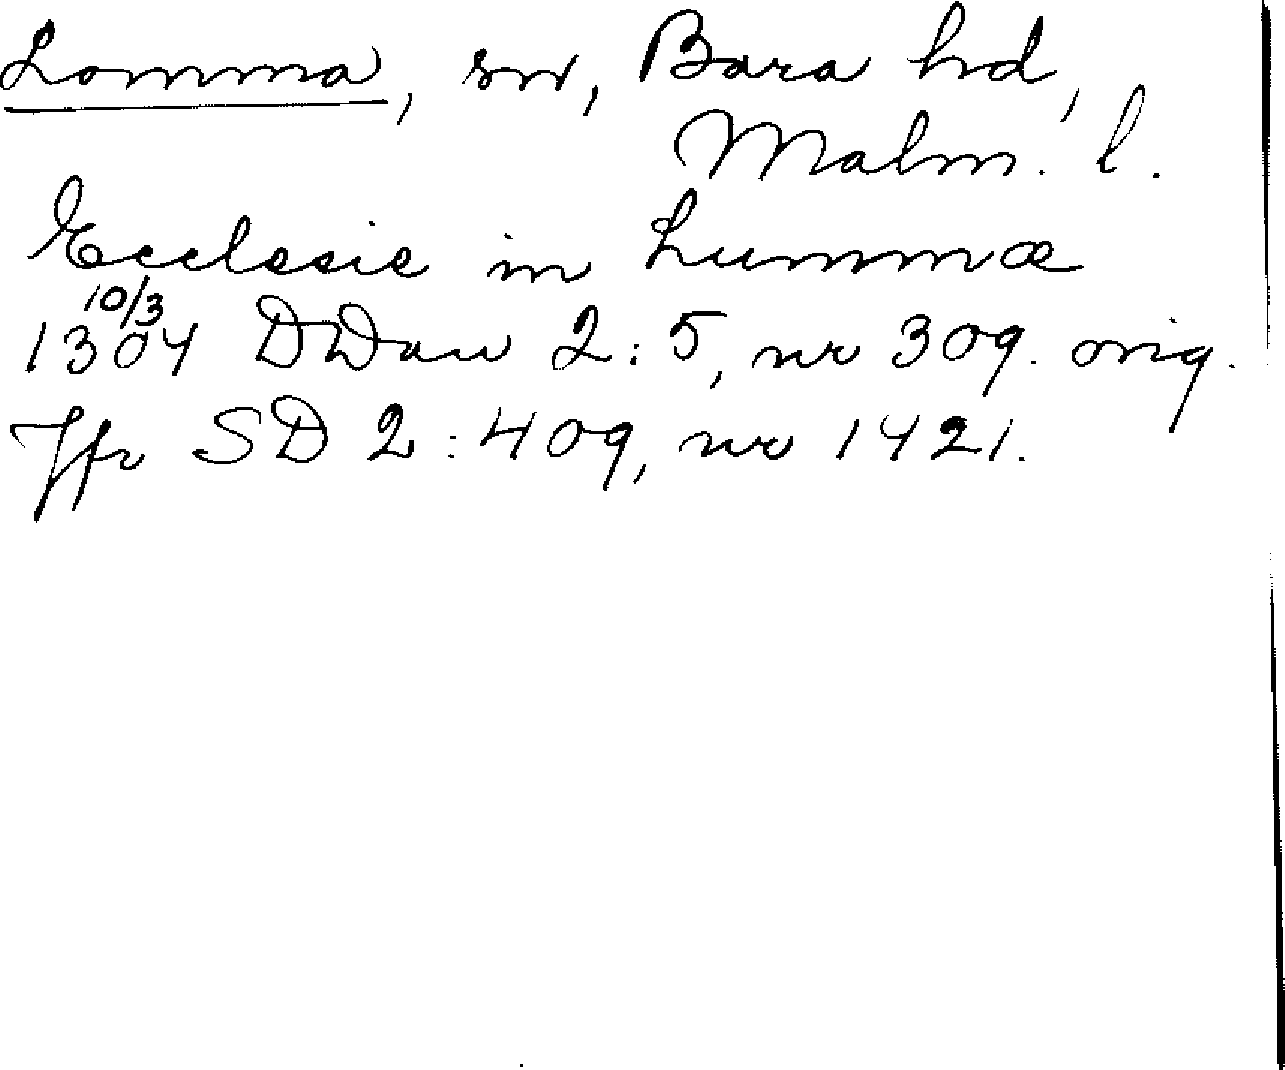 Lomma, sn, Bara hd,
Malm. l.
Ecclesie in Lummæ
10/3
1304 DDan 2:5, nr 309. orig.
Jfr SD 2:409, nr 1421.